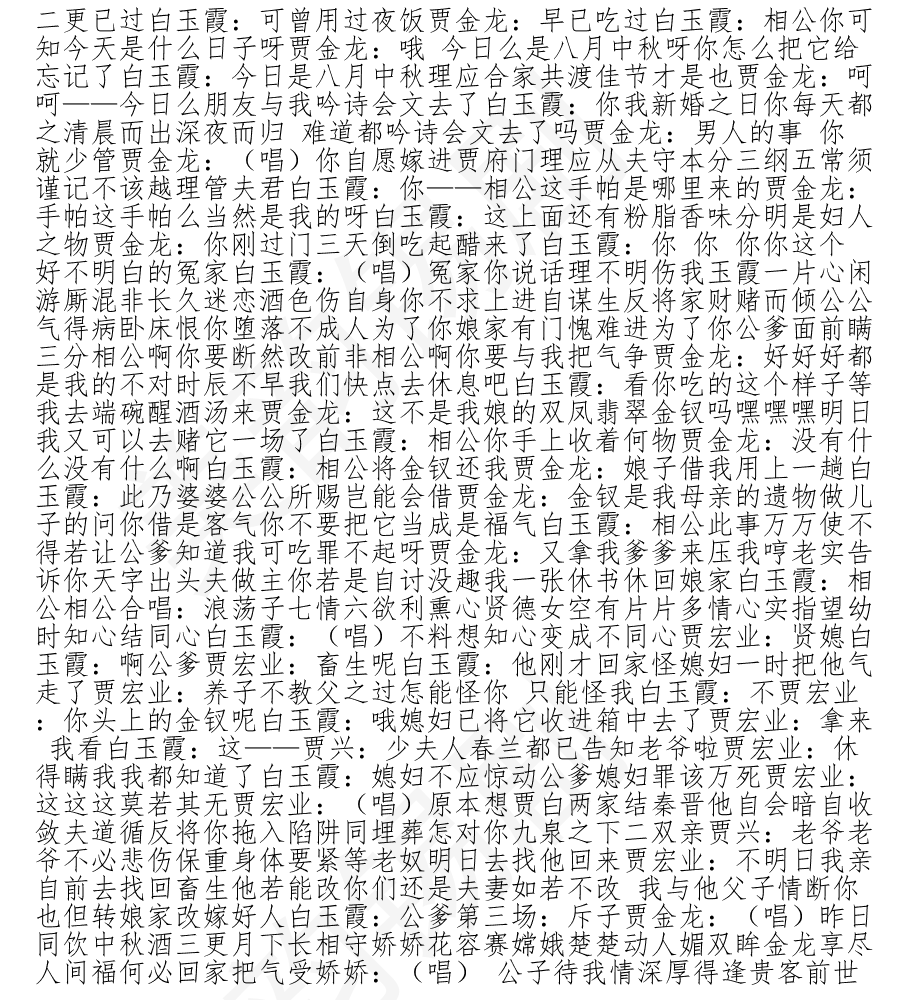 二更已过白玉霞：可曾用过夜饭贾金龙：早已吃过白玉霞：相公你可
知今天是什么日子呀贾金龙：哦 今日么是八月中秋呀你怎么把它给
忘记了白玉霞：今日是八月中秋理应合家共渡佳节才是也贾金龙：呵
呵——今日么朋友与我吟诗会文去了白玉霞：你我新婚之日你每天都
之清晨而出深夜而归 难道都吟诗会文去了吗贾金龙：男人的事 你
就少管贾金龙：（唱）你自愿嫁进贾府门理应从夫守本分三纲五常须
谨记不该越理管夫君白玉霞：你——相公这手帕是哪里来的贾金龙：
手帕这手帕么当然是我的呀白玉霞：这上面还有粉脂香味分明是妇人
之物贾金龙：你刚过门三天倒吃起醋来了白玉霞：你 你 你你这个
好不明白的冤家白玉霞：（唱）冤家你说话理不明伤我玉霞一片心闲
游厮混非长久迷恋酒色伤自身你不求上进自谋生反将家财赌而倾公公
气得病卧床恨你堕落不成人为了你娘家有门愧难进为了你公爹面前瞒
三分相公啊你要断然改前非相公啊你要与我把气争贾金龙：好好好都
是我的不对时辰不早我们快点去休息吧白玉霞：看你吃的这个样子等
我去端碗醒酒汤来贾金龙：这不是我娘的双凤翡翠金钗吗嘿嘿嘿明日
我又可以去赌它一场了白玉霞：相公你手上收着何物贾金龙：没有什
么没有什么啊白玉霞：相公将金钗还我贾金龙：娘子借我用上一趟白
玉霞：此乃婆婆公公所赐岂能会借贾金龙：金钗是我母亲的遗物做儿
子的问你借是客气你不要把它当成是福气白玉霞：相公此事万万使不
得若让公爹知道我可吃罪不起呀贾金龙：又拿我爹爹来压我哼老实告
诉你天字出头夫做主你若是自讨没趣我一张休书休回娘家白玉霞：相
公相公合唱：浪荡子七情六欲利熏心贤德女空有片片多情心实指望幼
时知心结同心白玉霞：（唱）不料想知心变成不同心贾宏业：贤媳白
玉霞：啊公爹贾宏业：畜生呢白玉霞：他刚才回家怪媳妇一时把他气
走了贾宏业：养子不教父之过怎能怪你 只能怪我白玉霞：不贾宏业
：你头上的金钗呢白玉霞：哦媳妇已将它收进箱中去了贾宏业：拿来
 我看白玉霞：这——贾兴：少夫人春兰都已告知老爷啦贾宏业：休
得瞒我我都知道了白玉霞：媳妇不应惊动公爹媳妇罪该万死贾宏业：
这这这莫若其无贾宏业：（唱）原本想贾白两家结秦晋他自会暗自收
敛夫道循反将你拖入陷阱同埋葬怎对你九泉之下二双亲贾兴：老爷老
爷不必悲伤保重身体要紧等老奴明日去找他回来贾宏业：不明日我亲
自前去找回畜生他若能改你们还是夫妻如若不改 我与他父子情断你
也但转娘家改嫁好人白玉霞：公爹第三场：斥子贾金龙：（唱）昨日
同饮中秋酒三更月下长相守娇娇花容赛嫦娥楚楚动人媚双眸金龙享尽
人间福何必回家把气受娇娇：（唱） 公子待我情深厚得逢贵客前世